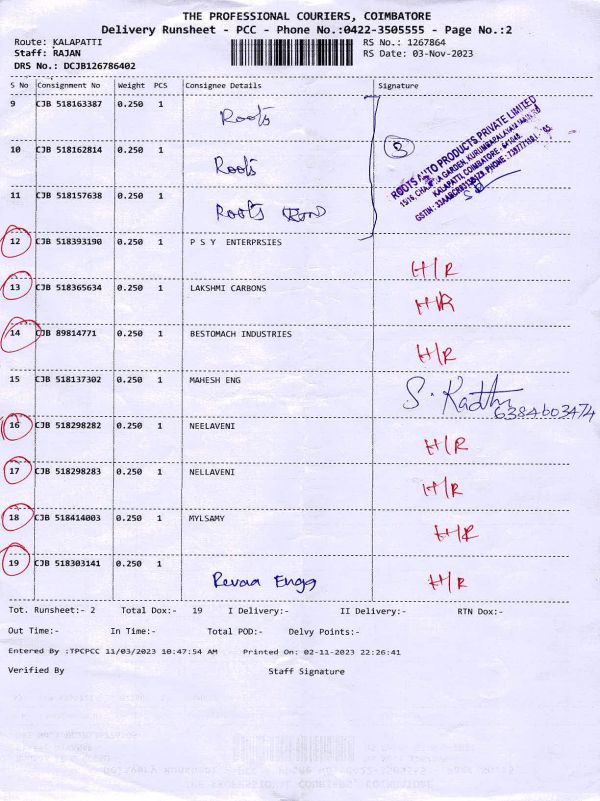 THE PROFESSIONAL COURIERS, COIMBATORE
Delivery Runsheet - PCC - Phone No.:0422-3505555 - Page No.:2
Route: KALAPATTI RS No.: 1267864
Staff: RAJAN RS Date: 03-Nov-2023
DRS No.: DCJB126786402
S No Consignment No Weight PCS Consignee Details Signature
9 CJB 518163387 0.250 1 Roots
10 CJB 518162814 0.250 1 Roots
11 CJB 518157638 0.250 1 Roots
ROOTS AUTO PRODUCTS PRIVATE LIMITED
KALAPATTI, COIMBATORE
12 CJB 518393190 0.250 1 P S Y ENTERPRSIES H/R
13 CJB 518365634 0.250 1 LAKSHMI CARBONS H/R
14 CJB 89814771 0.250 1 BESTOMACH INDUSTRIES H/R
15 CJB 518137302 0.250 1 MAHESH ENG
6384603474
16 CJB 518298282 0.250 1 NEELAVENI H/R
17 CJB 518298283 0.250 1 NELLAVENI H/R
18 CJB 518414003 0.250 1 MYLSAMY H/R
19 CJB 518303141 0.250 1 Revaa Engg H/R
Tot. Runsheet:- 2 Total Dox:- 19 I Delivery:- II Delivery:- RTN Dox:-
Out Time:- In Time:- Total POD:- Delvy Points:-
Entered By :TPCPCC 11/03/2023 10:47:54 AM Printed On: 02-11-2023 22:26:41
Verified By Staff Signature